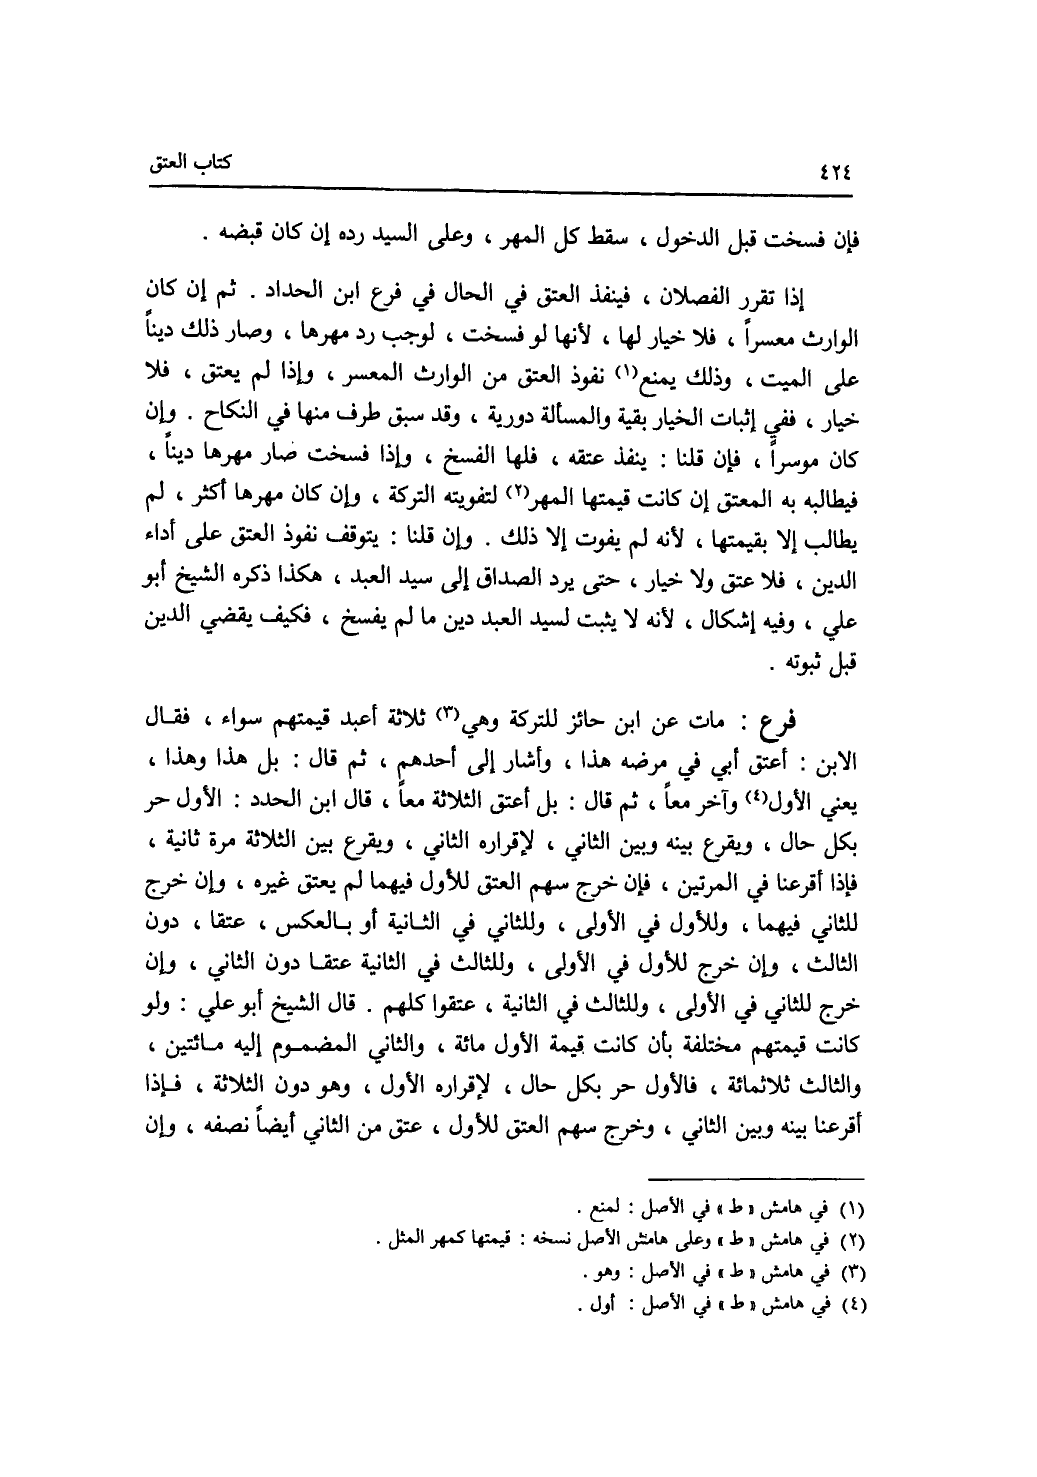 ٤٢٤
كتاب العتق
فإن فسخت قبل الدخول ، سقط كل المهر ، وعلى السيد رده إن كان قبضه .
إذا تقرر الفصلان ، فينفذ العتق في الحال في فرع ابن الحداد . ثم إن كان
الوارث معسراً ، فلا خيار لها ، لأنها لو فسخت ، لوجب رد مهرها ، وصار ذلك ديناً
على الميت ، وذلك يمنع(١) نفوذ العتق من الوارث المعسر ، وإذا لم يعتق ، فلا
خيار ، ففي إثبات الخيار بقية والمسألة دورية ، وقد سبق طرف منها في النكاح . وإن
كان موسراً ، فإن قلنا : ينفذ عتقه ، فلها الفسخ ، وإذا فسخت صار مهرها ديناً ،
فيطالبه به المعتق إن كانت قيمتها المهر(٢) لتفويته التركة ، وإن كان مهرها أكثر ، لم
يطالب إلا بقيمتها ، لأنه لم يفوت إلا ذلك . وإن قلنا : يتوقف نفوذ العتق على أداء
الدين ، فلا عتق ولا خيار ، حتى يرد الصداق إلى سيد العبد ، هكذا ذكره الشيخ أبو
علي ، وفيه إشكال ، لأنه لا يثبت لسيد العبد دين ما لم يفسخ ، فكيف يقضي الدين
قبل ثبوته .
فرع : مات عن ابن حائز للتركة وهي(٣) ثلاثة أعبد قيمتهم سواء ، فقال
الابن : أعتق أبي في مرضه هذا ، وأشار إلى أحدهم ، ثم قال : بل هذا وهذا ،
يعني الأول(٤) وآخر معاً ، ثم قال : بل أعتق الثلاثة معاً ، قال ابن الحدد : الأول حر
بكل حال ، ويقرع بينه وبين الثاني ، لإقراره الثاني ، ويقرع بين الثلاثة مرة ثانية ،
فإذا أقرعنا في المرتين ، فإن خرج سهم العتق للأول فيهما لم يعتق غيره ، وإن خرج
للثاني فيهما ، وللأول في الأولى ، وللثاني في الثانية أو بالعكس ، عتقا ، دون
الثالث ، وإن خرج للأول في الأولى ، وللثالث في الثانية عتقا دون الثاني ، وإن
خرج للثاني في الأولى ، وللثالث في الثانية ، عتقوا كلهم . قال الشيخ أبو علي : ولو
كانت قيمتهم مختلفة بأن كانت قيمة الأول مائة ، والثاني المضموم إليه مائتين ،
والثالث ثلاثمائة ، فالأول حر بكل حال ، لإقراره الأول ، وهو دون الثلاثة ، فإذا
أقرعنا بينه وبين الثاني ، وخرج سهم العتق للأول ، عتق من الثاني أيضاً نصفه ، وإن
(١) في هامش « ط » في الأصل : لمنع .
(٢) في هامش « ط » وعلى هامش الأصل نسخه : قيمتها كمهر المثل .
(٣) في هامش « ط » في الأصل : وهو .
(٤) في هامش « ط » في الأصل : أول .